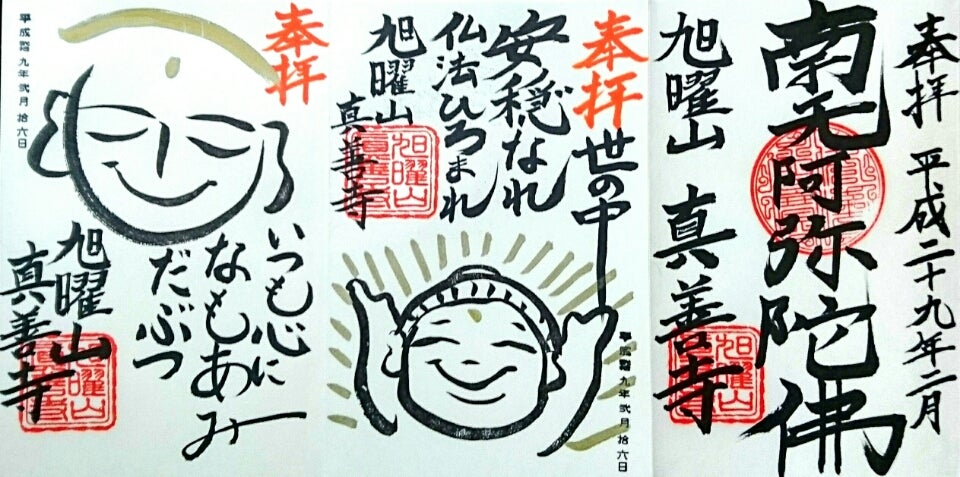 奉拝 平成二十九年二月
南无阿弥陀佛
旭曜山 真善寺
旭曜山
奉拝
世の中
安穏なれ
仏法ひろまれ
旭曜山
真善寺
旭曜山
真善寺
平成 九年弐月拾六日
奉拝
いつも心に
なもあみ
だぶつ
旭曜山
真善寺
旭曜山
平成 九年弐月拾六日